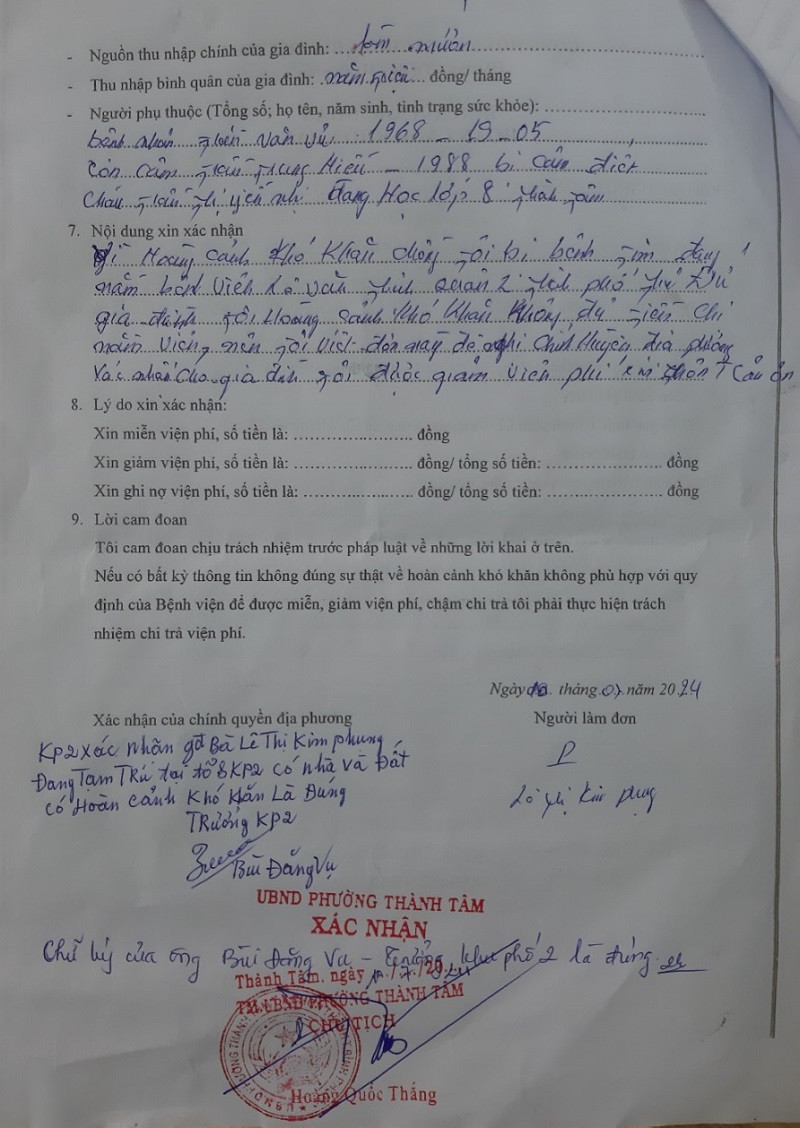 - Nguồn thu nhập chính của gia đình: làm mướn
- Thu nhập bình quân của gia đình: năm triệu đồng/ tháng
- Người phụ thuộc (Tổng số; họ tên, năm sinh, tình trạng sức khỏe):
bệnh nhân văn 1968 - 19 - 05
Con Hiếu - 1988 bị câm điếc
Cháu thị yến nhi Đang Học lớp 8 thành tâm
7. Nội dung xin xác nhận
Vì Hoàng cảnh Khó Khăn chồng tôi bị bệnh tim đang
nằm bệnh viện Lê văn thịnh quận 2 thành phố thủ Đức
gia đình tôi Hoàng cảnh Khó Khăn Không đủ tiền chi
nằm viện, nên tôi viết đơn này đề nghị chính Huyền địa phương
xác nhận cho gia đình tôi được giảm viện phí
8. Lý do xin xác nhận:
Xin miễn viện phí, số tiền là: đồng
Xin giảm viện phí, số tiền là: đồng/ tổng số tiền: đồng
Xin ghi nợ viện phí, số tiền là: đồng/ tổng số tiền: đồng
9. Lời cam đoan
Tôi cam đoan chịu trách nhiệm trước pháp luật về những lời khai ở trên.
Nếu có bất kỳ thông tin không đúng sự thật về hoàn cảnh khó khăn không phù hợp với quy
định của Bệnh viện để được miễn, giảm viện phí, chậm chi trả tôi phải thực hiện trách
nhiệm chi trả viện phí.
Ngày 10 tháng 07 năm 2024
Xác nhận của chính quyền địa phương Người làm đơn
KP2 xác nhận gđ Bà Lê Thị Kim phụng
Đang Tạm Trú tại tổ 8 KP2 có nhà và Đất
có Hoàn cảnh Khó Khăn Là Đúng
Lê thị Kim phụng
Trưởng KP2
Bùi Đăng Vụ
UBND PHƯỜNG THÀNH TÂM
XÁC NHẬN
Chữ ký của ông Bùi Đăng Vụ - Trưởng khu phố 2 là đúng
Thành Tâm, ngày
TM. UBND PHƯỜNG THÀNH TÂM
CHỦ TỊCH
Hoàng Quốc Thắng